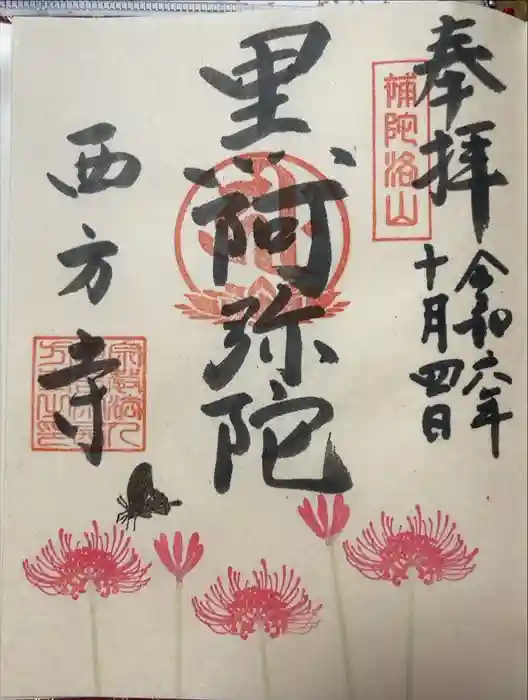 奉拝
補陀洛山
令和六年
十月四日
里阿弥陀
西方寺